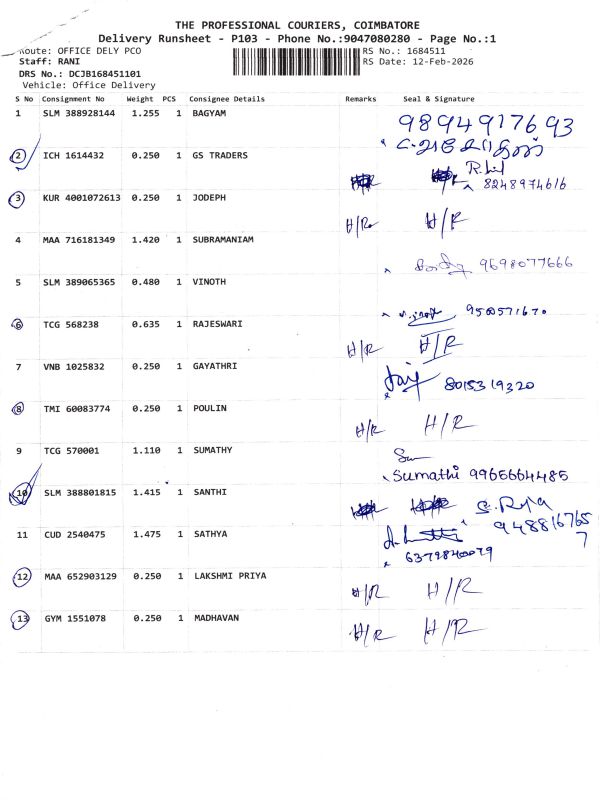 THE PROFESSIONAL COURIERS, COIMBATORE
Delivery Runsheet - P103 - Phone No.:9047080280 - Page No.:1
Route: OFFICE DELY PCO RS No.: 1684511
Staff: RANI RS Date: 12-Feb-2026
DRS No.: DCJB168451101
Vehicle: Office Delivery
S No Consignment No Weight PCS Consignee Details Remarks Seal & Signature
1 SLM 388928144 1.255 1 BAGYAM 9894917693
2 ICH 1614432 0.250 1 GS TRADERS
8248974616
3 KUR 4001072613 0.250 1 JODEPH
H/R H/R
4 MAA 716181349 1.420 1 SUBRAMANIAM
9698077666
5 SLM 389065365 0.480 1 VINOTH
6 TCG 568238 0.635 1 RAJESWARI
H/R H/R
7 VNB 1025832 0.250 1 GAYATHRI
8015319320
8 TMI 60083774 0.250 1 POULIN
H/R H/R
9 TCG 570001 1.110 1 SUMATHY
Sumathi 9965664485
10 SLM 388801815 1.415 1 SANTHI
9488167657
11 CUD 2540475 1.475 1 SATHYA
6379840079
12 MAA 652903129 0.250 1 LAKSHMI PRIYA
H/R H/R
13 GYM 1551078 0.250 1 MADHAVAN
H/R H/R